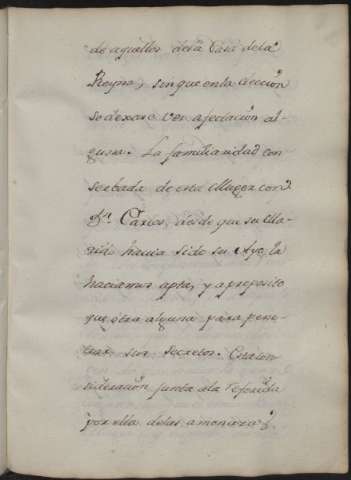 de aquellos de la Casa de la
Reyna, sin que en la eleccion
se dexase ver afectacion al-
guna. La familiaridad con
serbada de esta Muger con
Dn. Carlos, desde que su Ma-
rido havia sido su Ayo, la
hacia mas apta, y aproposito
que otra alguna para pene-
trar sus Secretos. Esta con
sideracion junta a la referida
por ella de las amenazas